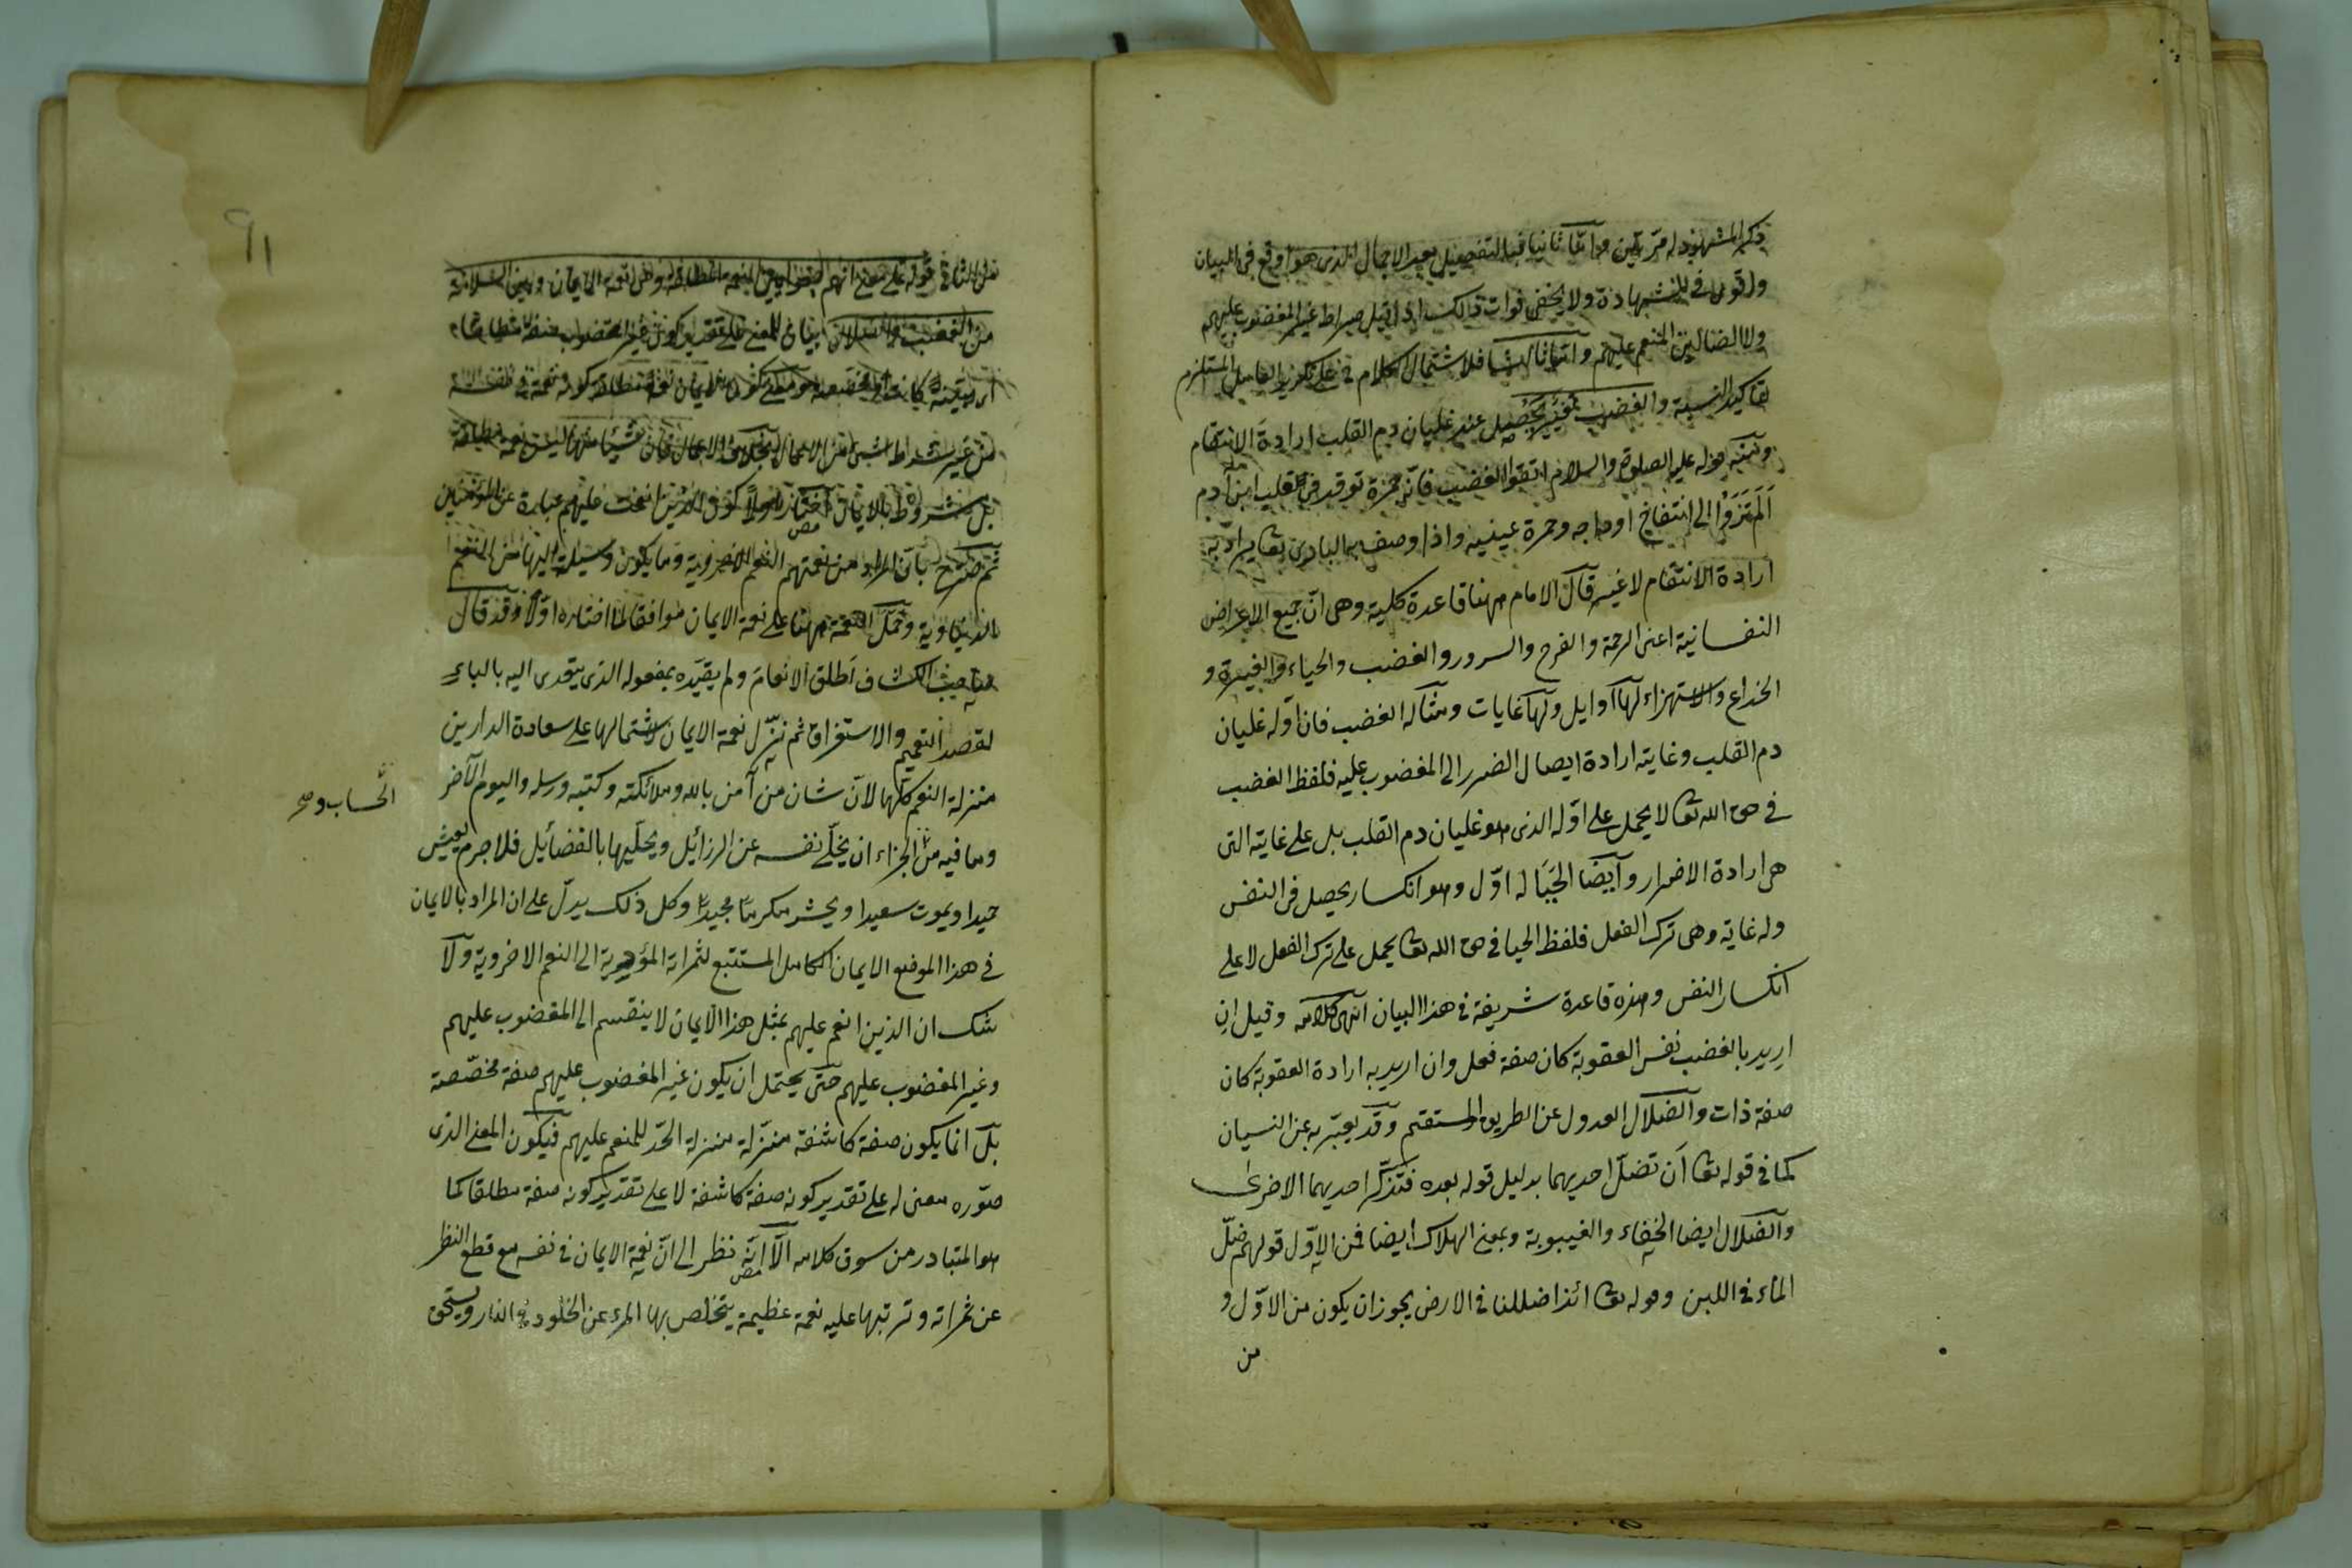 ذكر المشهود له مرتين واما ثانيا فبالتفصيل بعد الاجمال الذى هو اوقع فى البيان
واقوى فى الشهادة ولا يخفى فوات ذلك اذا قيل صراط غير المغضوب عليهم
ولا الضالين المنعم عليهم واما ثالثا فلاشتمال الكلام فى على تكرير العامل المستلزم
لتاكيد النسبة والغضب تغير يحصل عند غليان دم القلب ارادة الانتقام
ومنه قوله عليه الصلوة والسلام اتقوا الغضب فانه جمرة توقد فى قلب ابن آدم
الم تروا الى انتفاخ اوداجه وحمرة عينيه واذا وصف به البارى تعا يراد به
ارادة الانتقام لا غير قال الامام ههنا قاعدة كلية وهى ان جميع الاعراض
النفسانية اعنى الرحمة والفرح والسرور والغضب والحياء والغيرة و
الخداع والاستهزاء لها اوايل ولها غايات ومثاله الغضب فان اوله غليان
دم القلب وغايته ارادة ايصال الضرر الى المغضوب عليه فلفظ الغضب
فى حق الله تعا لا يحمل على اوله الذى هو غليان دم القلب بل على غايته التى
هى ارادة الاضرار وايضا الحيا له اوّل وهو انكسار يحصل فى النفس
وله غاية وهى ترك الفعل فلفظ الحيا فى حق الله تعا يحمل على ترك الفعل لا على
انكسار النفس وهذه قاعدة شريفة فى هذا البيان انتهى كلامه وقيل ان
اريد بالغضب نفس العقوبة كان صفة فعل وان اريد به ارادة العقوبة كان
صفة ذات والضلال العدول عن الطريق المستقيم وقد يعبّر به عن النسيان
كما فى قوله تعا ان تضلّ احديهما بدليل قوله بعده فتذكّر احديهما الاخرى
والضلال ايضا الخفاء والغيبوبة وبمعنى الهلاك ايضا فمن الاوّل قولهم ضلّ
الماء فى اللبن وقوله تعا ائذا ضللنا فى الارض يجوز ان يكون من الاوّل و
من
91
من الغضب والضلال بيان للمعنى على تقدير كون غير المغضوب صفة
بل مشروط بالايمان كون الذين انعمت عليهم عبارة عن المؤمنين
ثم صرّح بان المراد من نعمتهم النعم الاخروية وما يكون وسيلة اليها من النعم
الدنياوية وحمل النعمة ههنا على نعمة الايمان موافقا لما اختاره اولا وقد قال
صاحب الكشاف اطلق الانعام ولم يقيّده بمفعوله الذى يتعدى اليه بالباء
لقصد التعميم والاستغراق ثم نزّل نعمة الايمان لاشتمالها على سعادة الدارين
منزلة النعم كلّها لان شان من آمن بالله وملائكته وكتبه ورسله واليوم الآخر
وما فيه من الجزاء ان يخلّى نفسه عن الرزائل ويحلّيها بالفضائل فلا جرم يعيش
الحساب و صح
حيدا ويموت سعيدا ويحشر مكرما مجيدا وكل ذلك يدلّ على ان المراد بالايمان
فى هذا الموضع الايمان الكامل المستتبع لثمراته المؤدية الى النعم الاخروية ولا
شك ان الذين انعم عليهم بمثل هذا الايمان لا ينقسم الى المغضوب عليهم
وغير المغضوب عليهم حتى يحتمل ان يكون غير المغضوب عليهم صفة مخصّصة
بل انما يكون صفة كاشفة منزّلة منزلة الحدّ للمنعم عليهم فيكون المعنى الذى
صوّره معنى له على تقدير كونه صفة كاشفة لا على تقدير كونه صفة مطلقا كما
هو المتبادر من سوق كلامه الا انه نظر الى انّ نعمة الايمان فى نفسه مع قطع النظر
عن ثمراته وترتبها عليه نعمة عظيمة يتخلص بها المرء عن الخلود فى النار ويستحق